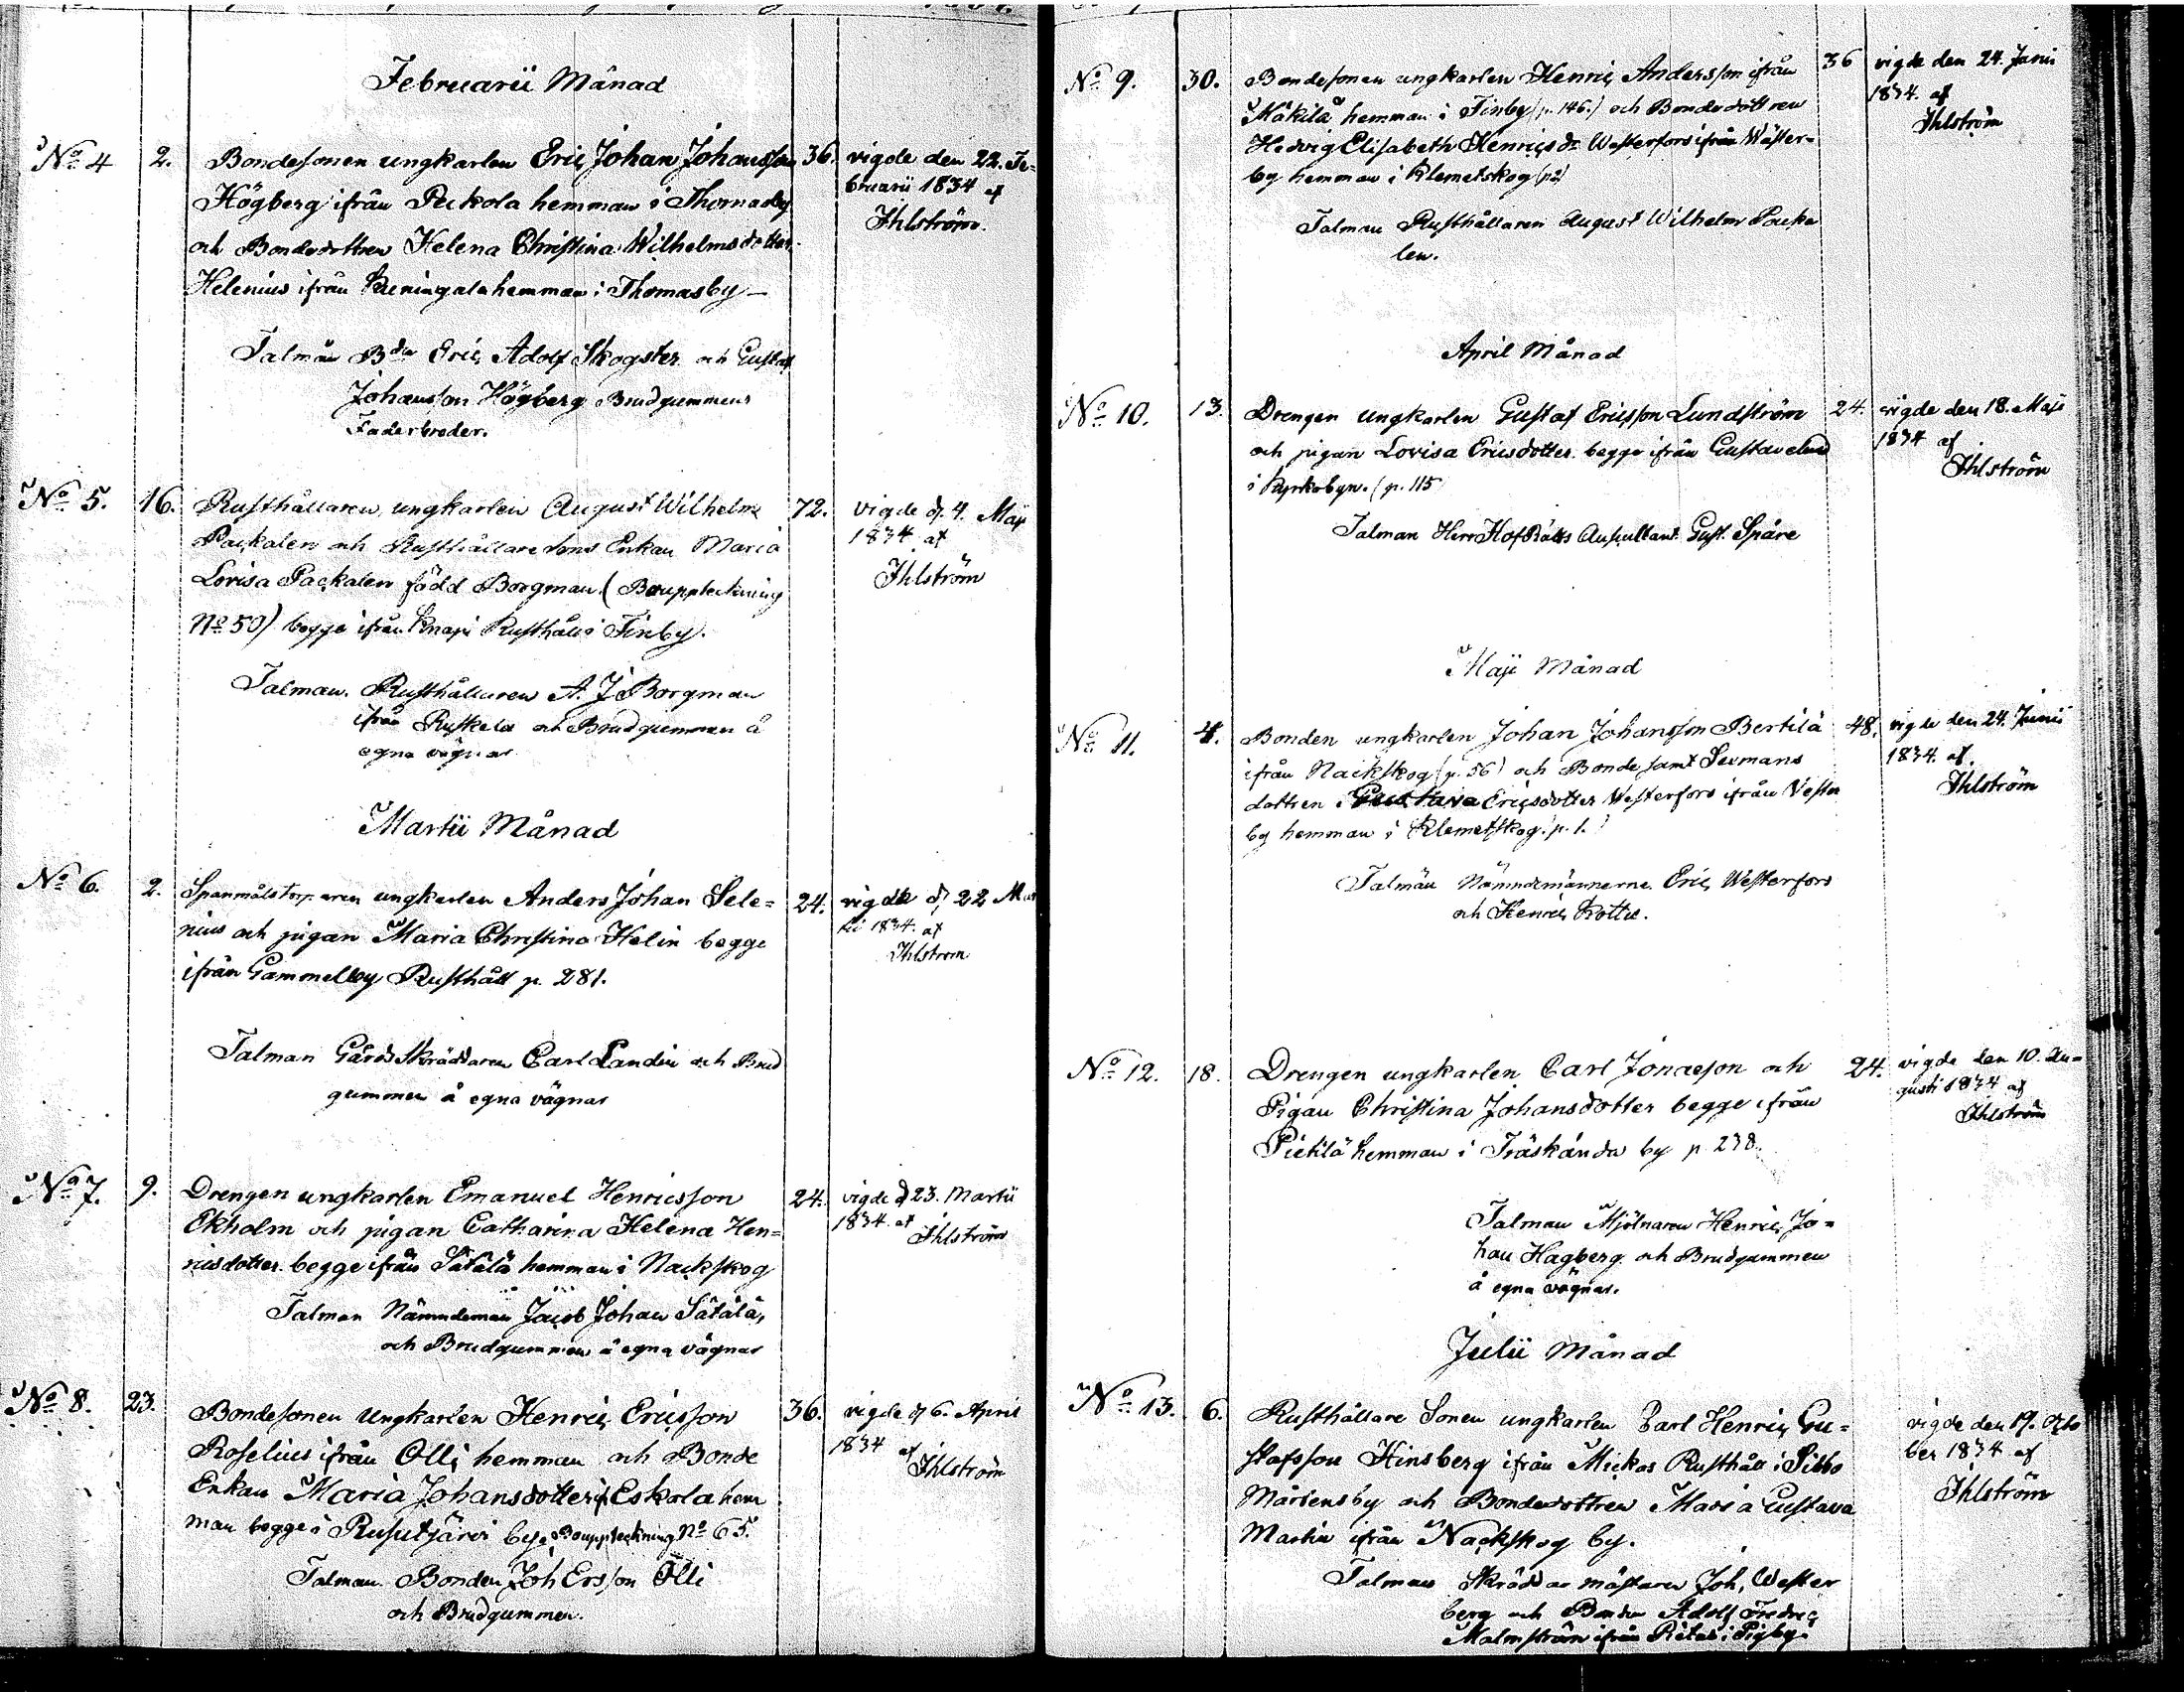 Februarii Månad
No 4 2. Bondesonen ungkarlen Eric Johan Johansson 36. vigde den 22. Fe-
Högberg ifrån Peckola hemman i Thomasby bruarii 1834 af
och Bondedottren Helena Christina Wilhelmsdotter Ihlström.
Helenius ifrån Keningala hemman i Thomasby
Talmän Bdn Eric Adolf Skogster och Gustaf
Johansson Högberg Brudgummens
Faderbroder.
No 5. 16. Rusthållaren ungkarlen August Wilhelm 72. vigde d. 4. Maji
Packalen och Rusthållaresons Enkan Maria 1834 af
Lovisa Packalen född Borgman (Bouppteckning Ihlström
No 50) begge ifrån Knapi Rusthåll i Finby.
Talman. Rusthållaren A. J Borgman
ifrån Ruskela och Brudgumman å
egna vägnar
Martii Månad
No 6. 2. Spanmålstorparen ungkarlen Anders Johan Sele= 24. vigde d. 22 Mar
nius och pigan Maria Christina Helin begge tii 1834. af
ifrån Gammelby Rusthåll p. 281. Ihlström
Talman Gårds Skräddaren Carl Landin och Brud
gummen å egna vägnar
No 7. 9. Drengen ungkarlen Emanuel Henricsson 24. vigde d 23. Martii
Ekholm och pigan Catharina Helena Hen= 1834. af
ricsdotter begge ifrån Sätälä hemman i Nackskog Ihlström
Talman Nämndeman Jacob Johan Sätälä,
och Brudgummen å egna vägnar
No 8. 23. Bondesonen Ungkarlen Henric Ericsson 36. vigde d 6. April
Roselius ifrån Olli hemman och Bonde 1834 af
Enkan Maria Johansdotter ifr Eskola hem Ihlström
man begge i Rusutjärvi by. Bouppteckning No 65.
Talman Bonden Joh Ersson Olli
och Brudgummen.
No 9. 30. Bondesonen ungkarlen Henric Andersson ifrån 36 vigde den 24. Junii
Mäkilä hemman i Finby (p. 146.) och Bondedottren 1834. af
Hedvig Elisabeth Henricsdr Westerfors ifrån Wäster= Ihlström
by hemman i Klemetskog (p 2)
Talman Rusthållaren August Wilhelm Packa
len.
April Månad
No 10. 13. Drengen ungkarlen Gustaf Ericsson Lundström 24. vigde den 18. Maji
och pigan Lovisa Ericsdotter begge ifrån Gustavelund 1834 af
i Kyrkobyn. (p. 115 Ihlström
Talman Herr HofRätts Auscultant Gust. Spåre
Maji Månad
No 11. 4. Bonden ungkarlen Johan Johansson Bertilä 48. vigde den 24. Junii
ifrån Nackskog (p. 56) och Bonde samt Sexmans 1834. af.
dottren Gustava Ericsdotter Westerfors ifrån Vester Ihlström
by hemman i Klemetskog p. 1.
Talmän Nämndemännerne Eric Westerfors
och Henric Rotter.
No 12. 18. Drengen ungkarlen Carl Jonasson och 24. vigde den 10. Au=
Pigan Christina Johansdotter begge ifrån gusti 1834 af
Pietilä hemman i Träskända by p 238. Ihlström
Talman Mjölnaren Henric Jo=
han Hagberg och Brudgummen
å egna vägnar.
Julii Månad
No 13. 6. Rusthållare Sonen ungkarlen Carl Henric Gu= vigde den 19. Octo
stafsson Hinsberg ifrån Mickos Rusthåll i Sibbo ber 1834 af
Mårtensby och Bondedottren Maria Gustava Ihlström
Martin ifrån Nackskog by.
Talman Skräddar mästaren Joh. Wester
berg och Bonden Adolf Fredric
Malmström ifrån